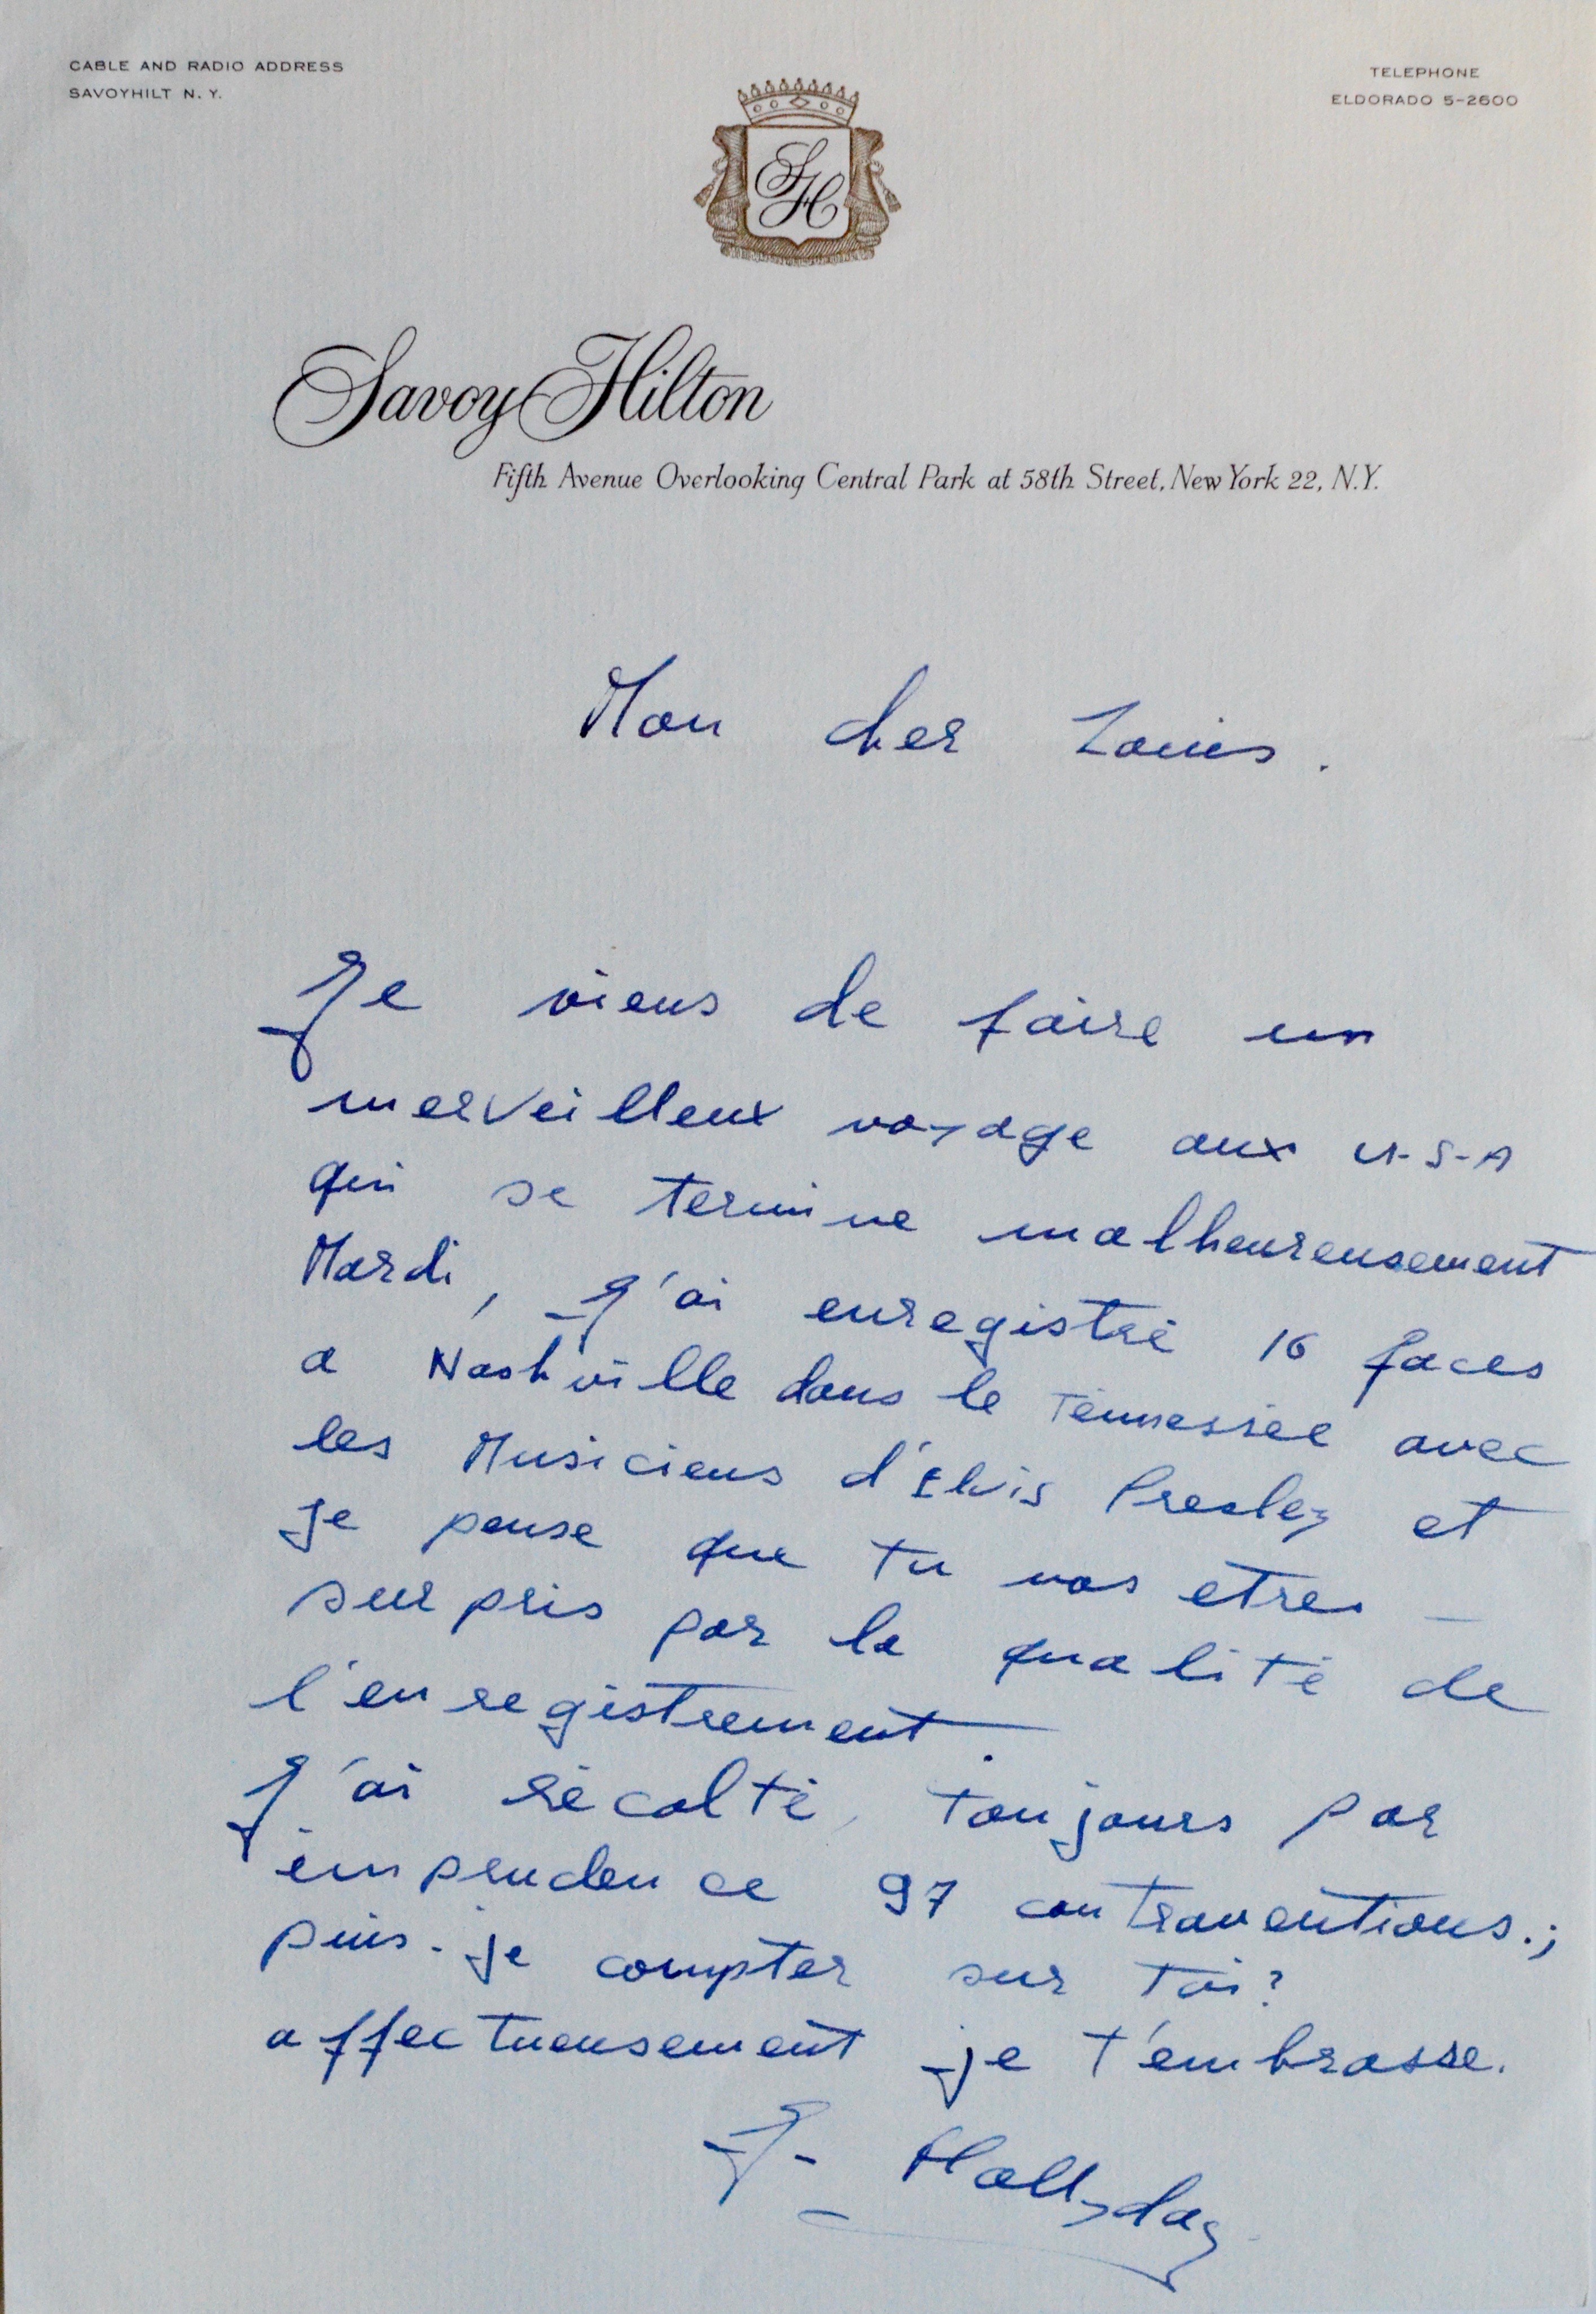 CABLE AND RADIO ADDRESS
SAVOYHILT N. Y.
TELEPHONE
ELDORADO 5-2600
SH
Savoy Hilton
Fifth Avenue Overlooking Central Park at 58th Street, New York 22, N.Y.
Mon cher Louis.
Je viens de faire un
merveilleux voyage aux U-S-A
qui se termine malheureusement
Mardi, J'ai enregistré 16 faces
a Nashville dans le Ténnessée avec
les Musiciens d'Elvis Presley et
je pense que tu vas etres
surpris par la qualité de
l'enregistrement.
J'ai récolté, toujours par
imprudence 97 contraventions.;
puis-je compter sur toi?
affectueusement je t'embrasse.
J- Hallyday